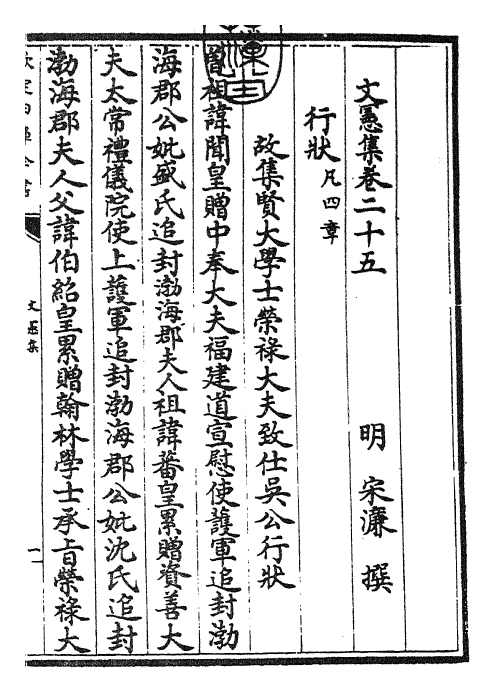 文憲集卷二十五
明 宋濂 撰
行狀凡四章
故集賢大學士榮祿大夫致仕吳公行狀
曾祖諱聞皇贈中奉大夫福建道宣慰使護軍追封渤
海郡公妣盛氏追封渤海郡夫人祖諱蕃皇累贈資善大
夫太常禮儀院使上護軍追封渤海郡公妣沈氏追封
渤海郡夫人父諱伯紹皇累贈翰林學士承旨榮祿大
文憲集
一